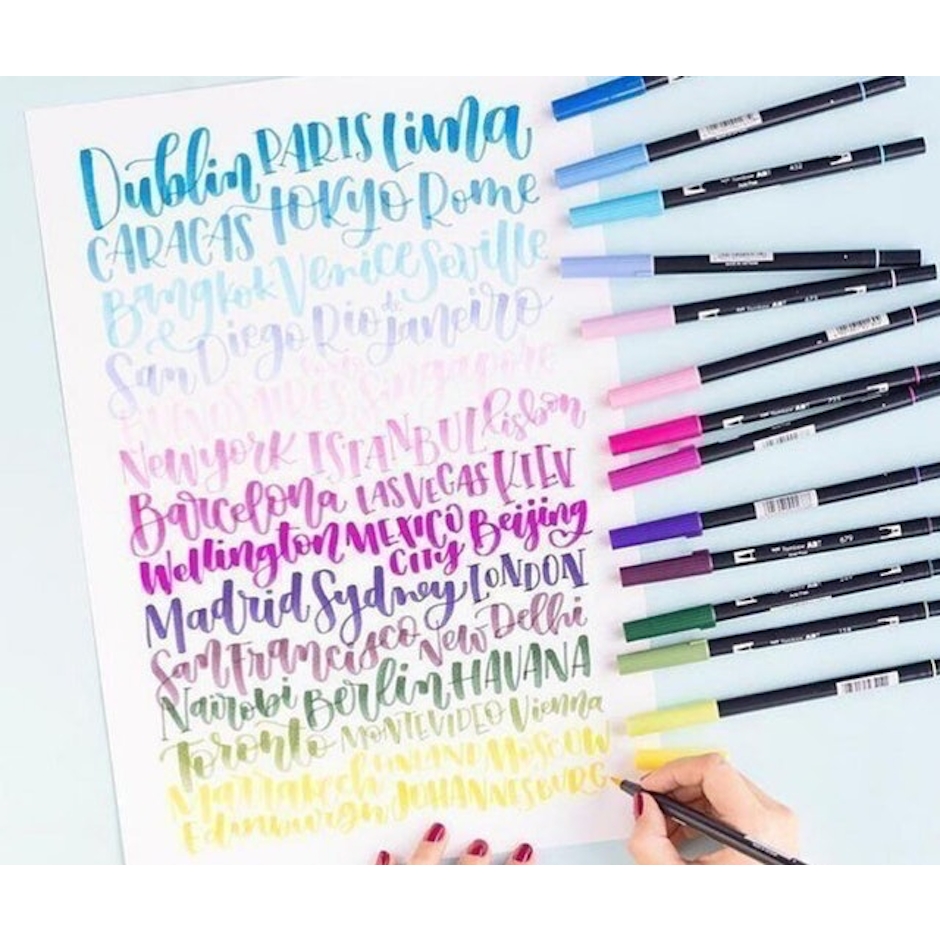 Dublin PARIS Lima
CARACAS TOKYO Rome
Bangkok Venice Seville
San Diego Rio de Janeiro
BUENOS AIRES Singapore
New york ISTANBUL lisbon
Barcelona LAS VEGAS KIEV
Wellington MEXICO CITY Beijing
Madrid Sydney LONDON
San Francisco New Delhi
Nairobi Berlin HAVANA
Toronto MONTEVIDEO Vienna
Marrakech Moscow
Edinburgh JOHANNESBURG
Tombow ABT 452
Tombow ABT 673
Tombow ABT
Tombow ABT 679